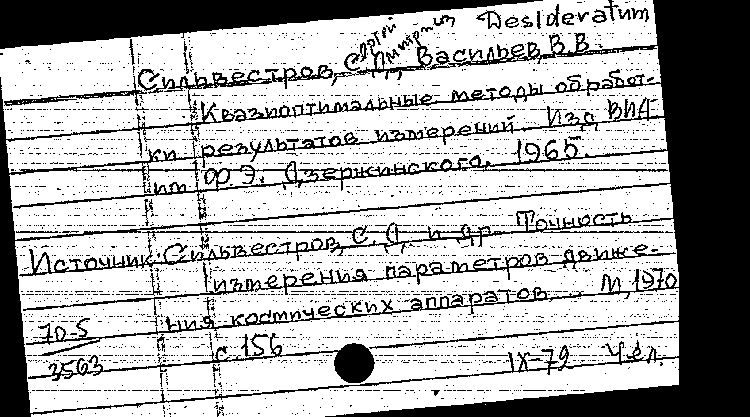 Desideratum
Сергей Дмитриев
Сильвестров, С. Д., Васильев, В. В.
Квазиоптимальные методы обработ-
ки результатов измерений. Изд. ВИА
им Ф. Э. Дзержинского. 1965.
Источник: Сильвестров, С. Д. и др. Точность
измерения параметров движе-
ния космических аппаратов. М, 1970
70-5
3563
с 156
IX-72 Чел.